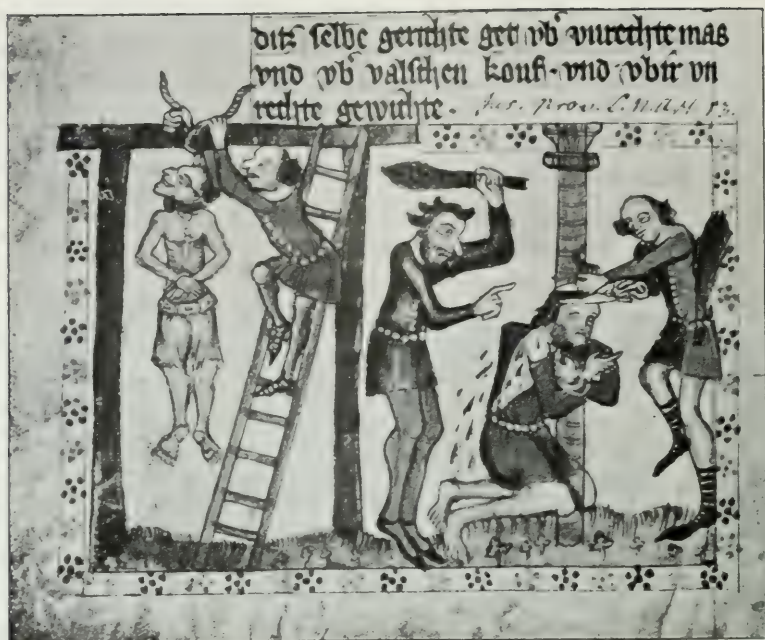 ditz selbe gerichte get vb' vnrechte mas
vnd vb' valschen kouf · vnd · vbir vn
rechte gewichte . Jus. prov.